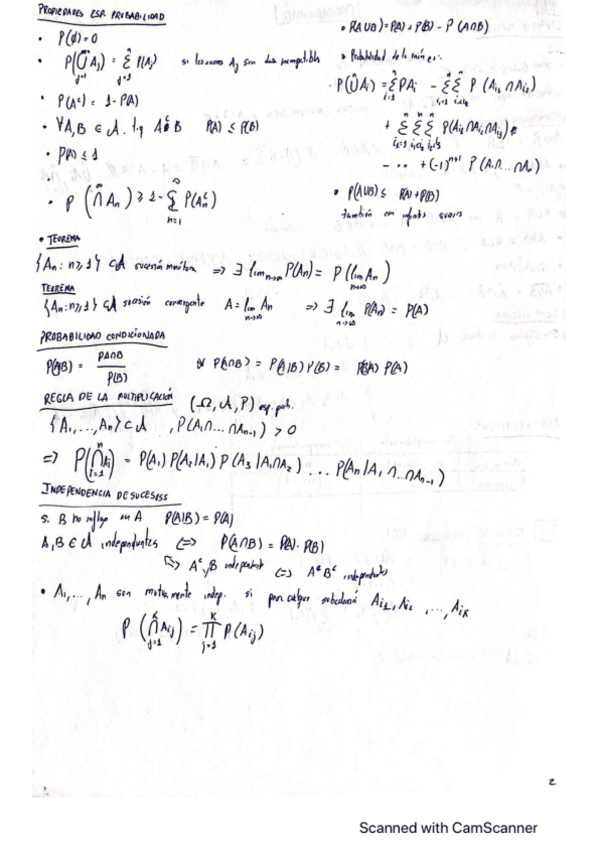 PROPIEDADES ESP. PROBABILIDAD
• P(∅)=0
• P(⋃_{j=1}^{n} A_j) = Σ_{j=1}^{n} P(A_j) si los sucesos A_j son dos incompatibles
• P(A^c) = 1 - P(A)
• ∀A,B ∈ 𝒜 t.q A⊂B P(A) ≤ P(B)
• P(A) ≤ 1
• P(⋂^{∞} A_n) ≥ 1 - Σ_{n=1}^{∞} P(A_n^c)
• P(A∪B)=P(A)+P(B) - P(A∩B)
• Probabilidad de la unión es:
P(⋃_{i=1}^{n} A_i) = Σ_{i=1}^{n} PA_i - ΣΣ P(A_{i1} ∩ A_{i2})
+ ΣΣΣ P(A_{i1}∩A_{i2}∩A_{i3})
- ... + (-1)^{n+1} P(A_1∩...∩A_n)
• P(A∪B) ≤ P(A)+P(B)
también con infinitos
• TEOREMA
{A_n : n≥1} ⊂ 𝒜 sucesión monótona ⇒ ∃ lim_{n→∞} P(A_n) = P(lim_{n→∞} A_n)
TEOREMA
{A_n : n≥1} ⊂ 𝒜 sucesión convergente A = lim_{n→∞} A_n ⇒ ∃ lim_{n→∞} P(A_n) = P(A)
PROBABILIDAD CONDICIONADA
P(A|B) = PA∩B / P(B) P(A∩B) = P(A|B) P(B) = P(A)
REGLA DE LA MULTIPLICACIÓN (Ω, 𝒜, P) esp. prob.
{A_1, ..., A_n} ⊂ 𝒜 , P(A_1∩...A_{n-1}) > 0
⇒ P(⋂_{i=1}^{n} A_i) = P(A_1) P(A_2|A_1) P(A_3|A_1∩A_2) ... P(A_n|A_1∩...∩A_{n-1})
INDEPENDENCIA DE SUCESOS
Si B no influye en A P(A|B) = P(A)
A, B ∈ 𝒜 independientes ⇔ P(A∩B) = P(A)·P(B)
⇔ A^c, B independientes ⇔ A^c B^c independientes
• A_1, ..., A_n son mutuamente indep. si para cualquier A_{i1}, A_{i2}, ..., A_{ik}
P(⋂_{j=1}^{k} A_{ij}) = ∏_{j=1}^{k} P(A_{ij})
2
Scanned with CamScanner